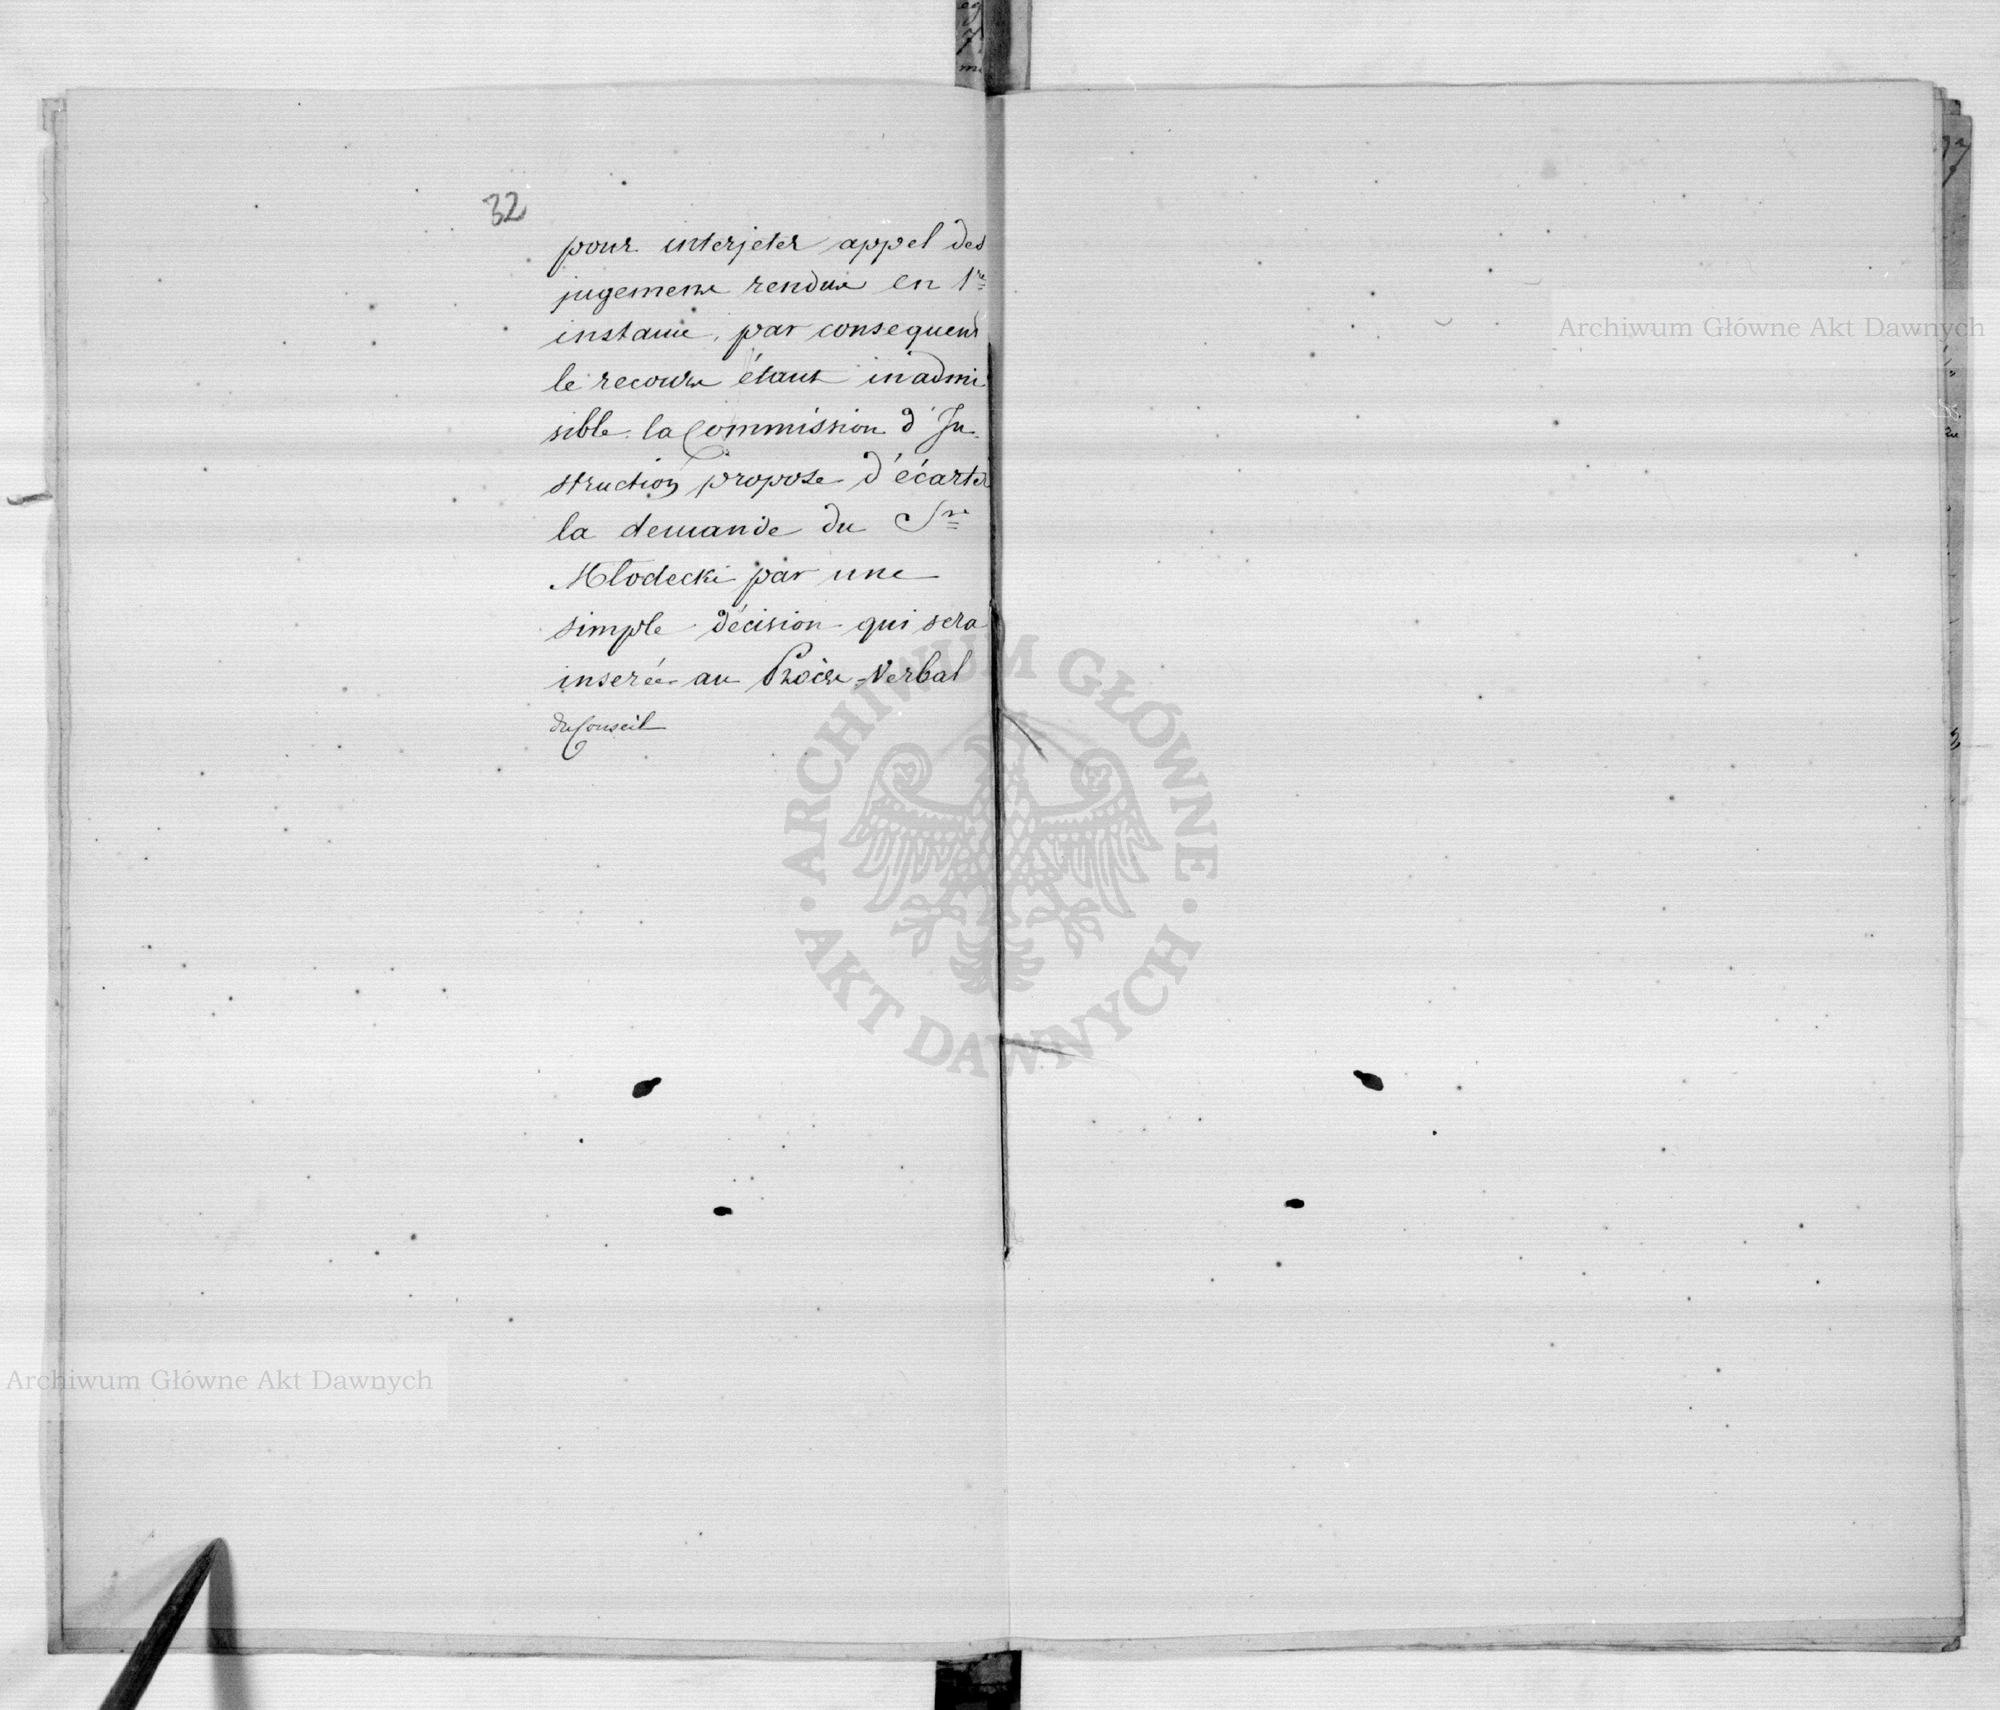 32
pour interjeter appel des
jugemens rendus en 1re
instance, par consequent
le recours étant inadmi
sible. la Commission d'In-
struction propose d'écarter
la demande du Sre
Mlodecki par une
simple décision qui sera
inserée au Procès-Verbal
du Conseil
Archiwum Główne Akt Dawnych
ARCHIWUM GŁÓWNE
AKT DAWNYCH
Archiwum Główne Akt Dawnych